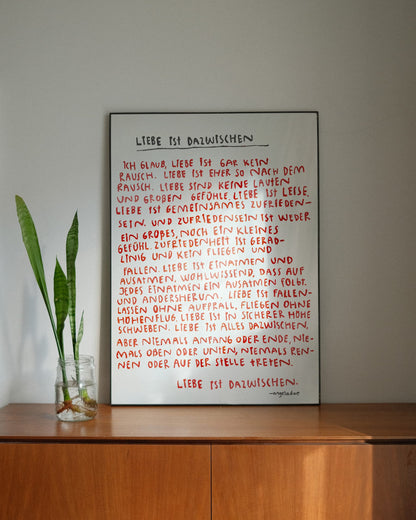 LIEBE IST DAZWISCHEN
ICH GLAUB, LIEBE IST GAR KEIN
RAUSCH. LIEBE IST EHER SO NACH DEM
RAUSCH. LIEBE SIND KEINE LAUTEN
UND GROẞEN GEFÜHLE, LIEBE IST LEISE.
LIEBE IST GEMEINSAMES ZUFRIEDEN-
SEIN. UND ZUFRIEDENSEIN IST WEDER
EIN GROẞES, NOCH EIN KLEINES
GEFÜHL. ZUFRIEDENHEIT IST GERAD-
LINIG UND KEIN FLIEGEN UND
FALLEN. LIEBE IST EINATMEN UND
AUSATMEN. WOHLWISSEND, DASS AUF
JEDES EINATMEN EIN AUSATMEN FOLGT.
UND ANDERSHERUM. LIEBE IST FALLEN-
LASSEN OHNE AUFPRALL, FLIEGEN OHNE
HÖHENFLUG. LIEBE IST IN SICHERER HÖHE
SCHWEBEN. LIEBE IST ALLES DAZWISCHEN,
ABER NIEMALS ANFANG ODER ENDE, NIE-
MALS OBEN ODER UNTEN, NIEMALS REN-
NEN ODER AUF DER STELLE TRETEN.
LIEBE IST DAZWISCHEN.